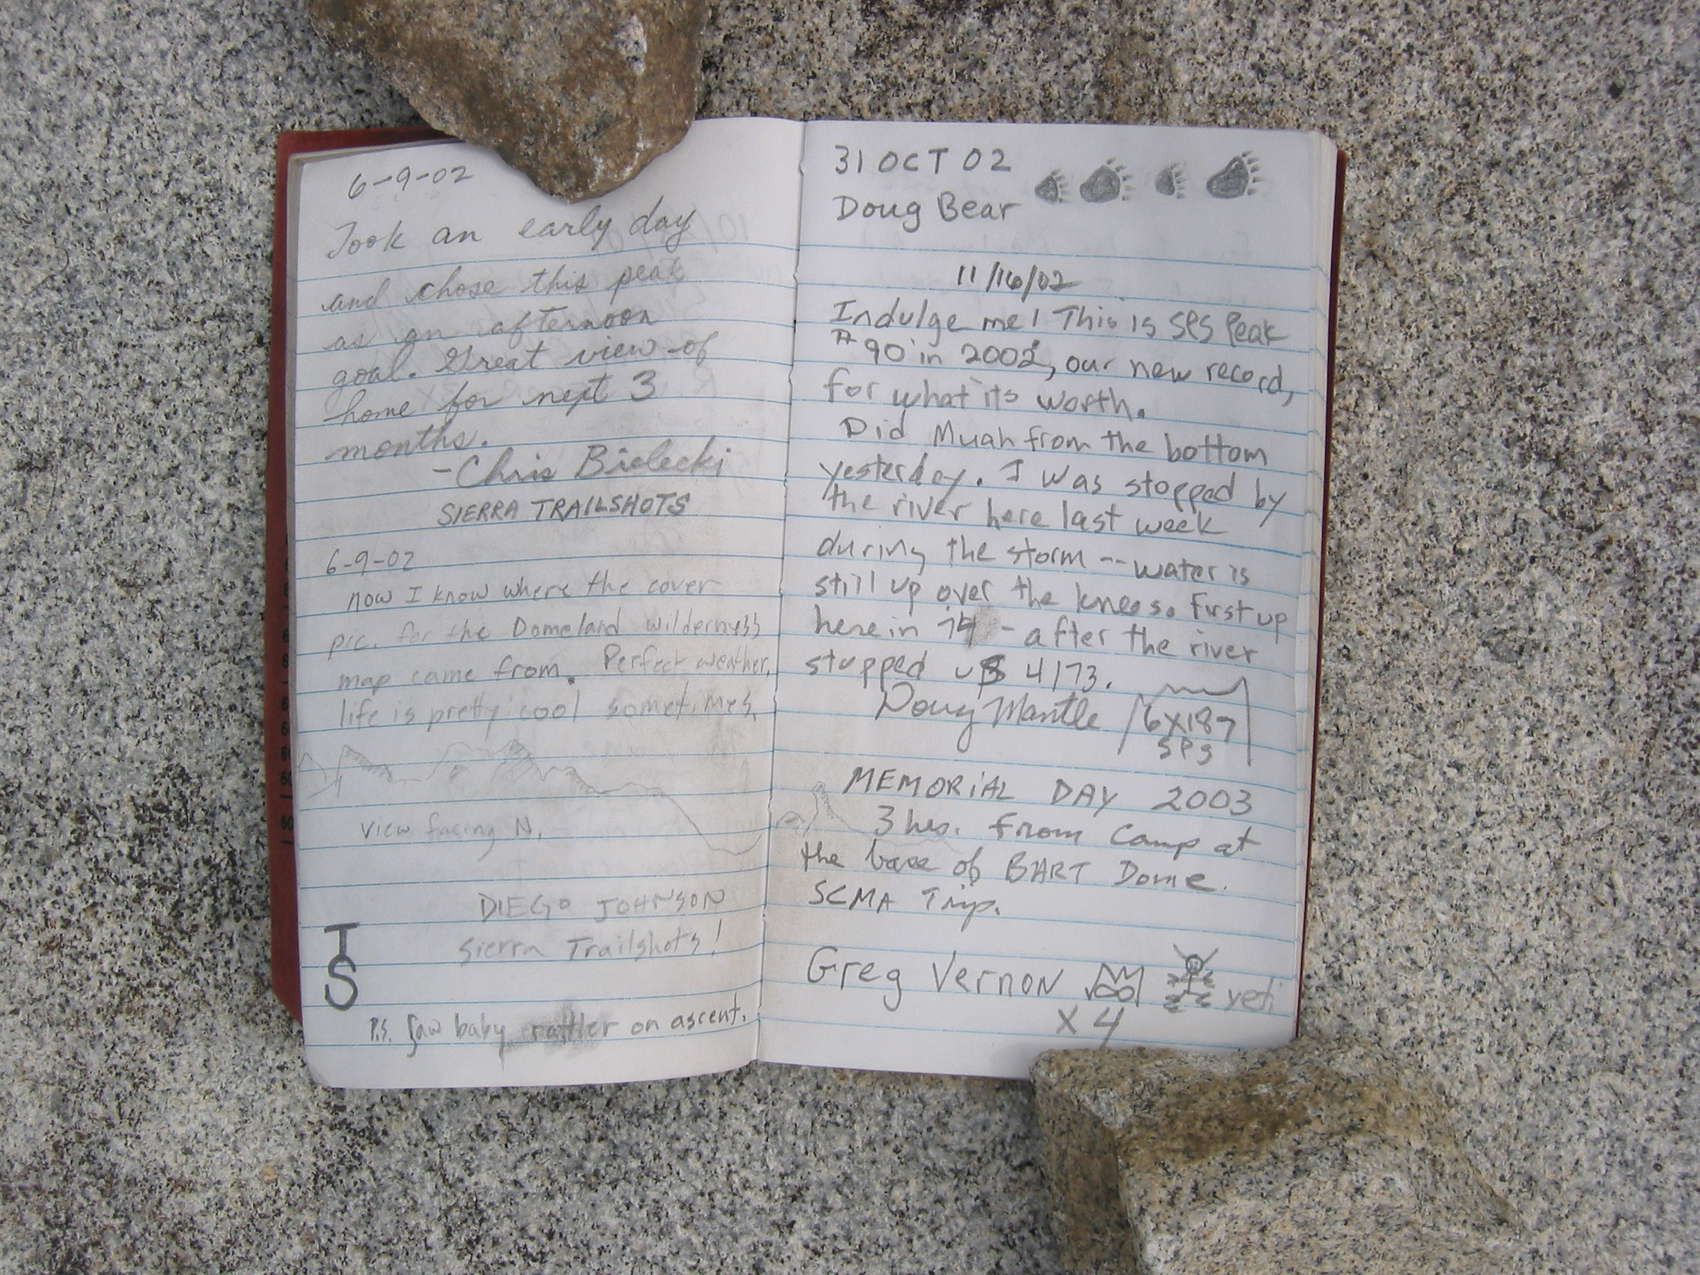 6-9-02
Took an early day
and chose this peak
as an afternoon
goal. Great view of
home for next 3
months.
- Chris Bielecki
SIERRA TRAILSHOTS
6-9-02
now I know where the cover
pic. for the Domeland wilderness
map came from. Perfect weather,
life is pretty cool sometimes.
view facing N.
DIEGO JOHNSON
Sierra Trailshots!
TS
P.S. Saw baby rattler on ascent.
31 OCT 02
Doug Bear
11/16/02
Indulge me! This is SPS Peak
# 90 in 2002, our new record,
for what its worth.
Did Muah from the bottom
yesterday. I was stopped by
the river here last week
during the storm -- water is
still up over the knees. First up
here in 74 - after the river
stopped us 4/73.
Doug Mantle 6X187
SPS
MEMORIAL DAY 2003
3 hrs. from camp at
the base of BART Dome.
SCMA Trip.
Greg Vernon yeti
X 4